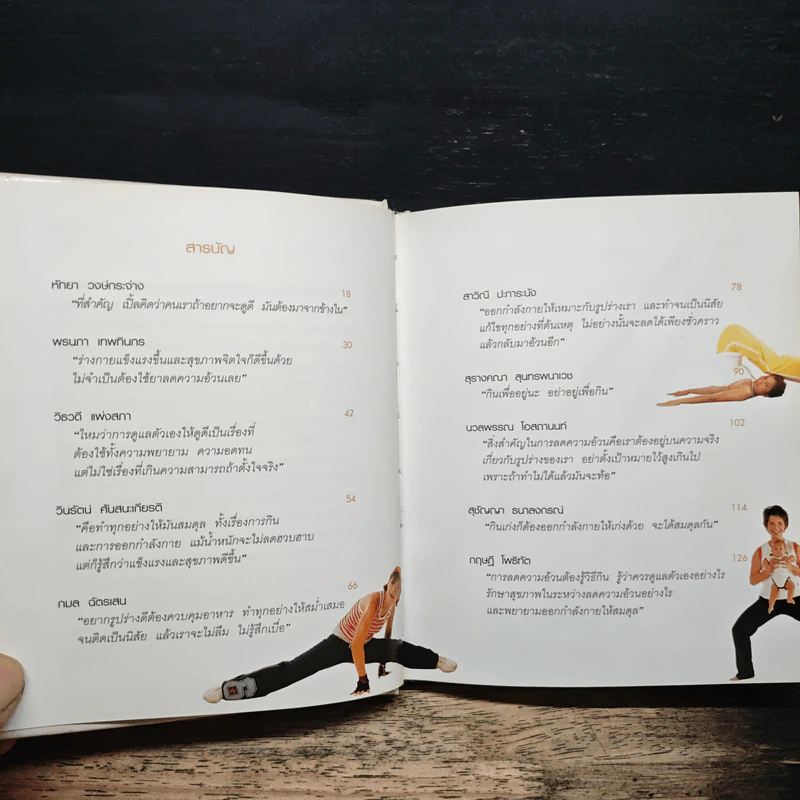 สารบัญ
หัทยา วงษ์กระจ่าง 18
“ที่สำคัญ เปิ้ลคิดว่าคนเราถ้าอยากจะดูดี มันต้องมาจากข้างใน”
พรนภา เทพทินกร 30
“ร่างกายแข็งแรงขึ้นและสุขภาพจิตใจก็ดีขึ้นด้วย
ไม่จำเป็นต้องใช้ยาลดความอ้วนเลย”
วิรวดี แพ่งสภา 42
“ใหมว่าการดูแลตัวเองให้ดูดีเป็นเรื่องที่
ต้องใช้ทั้งความพยายาม ความอดทน
แต่ไม่ใช่เรื่องที่เกินความสามารถถ้าตั้งใจจริง”
วินรัตน์ คันสนะเกียรติ 54
“คือทำทุกอย่างให้มันสมดุล ทั้งเรื่องการกิน
และการออกกำลังกาย แม้น้ำหนักจะไม่ลดฮวบฮาบ
แต่ก็รู้สึกว่าแข็งแรงและสุขภาพดีขึ้น”
กมล ฉัตรเสน 66
“อยากรูปร่างดีต้องควบคุมอาหาร ทำทุกอย่างให้สม่ำเสมอ
จนติดเป็นนิสัย แล้วเราจะไม่ลืม ไม่รู้สึกเบื่อ”
สาวิณี ปะการะนัง 78
“ออกกำลังกายให้เหมาะกับรูปร่างเรา และทำจนเป็นนิสัย
แก้ไขทุกอย่างที่ต้นเหตุ ไม่อย่างนั้นจะลดได้เพียงชั่วคราว
แล้วกลับมาอ้วนอีก”
สุรางคณา สุนทรพนาเวช 90
“กินเพื่ออยู่นะ อย่าอยู่เพื่อกิน”
นวลพรรณ โอสถานนท์ 102
“สิ่งสำคัญในการลดความอ้วนคือเราต้องอยู่บนความจริง
เกี่ยวกับรูปร่างของเรา อย่าตั้งเป้าหมายไว้สูงเกินไป
เพราะถ้าทำไม่ได้แล้วมันจะท้อ”
สุชัญญา ธนาลงกรณ์ 114
“กินเก่งก็ต้องออกกำลังกายให้เก่งด้วย จะได้สมดุลกัน”
กฤษฎี โพธิทัต 126
“การลดความอ้วนต้องรู้วิธีกิน รู้ว่าควรดูแลตัวเองอย่างไร
รักษาสุขภาพในระหว่างลดความอ้วนอย่างไร
และพยายามออกกำลังกายให้สมดุล”